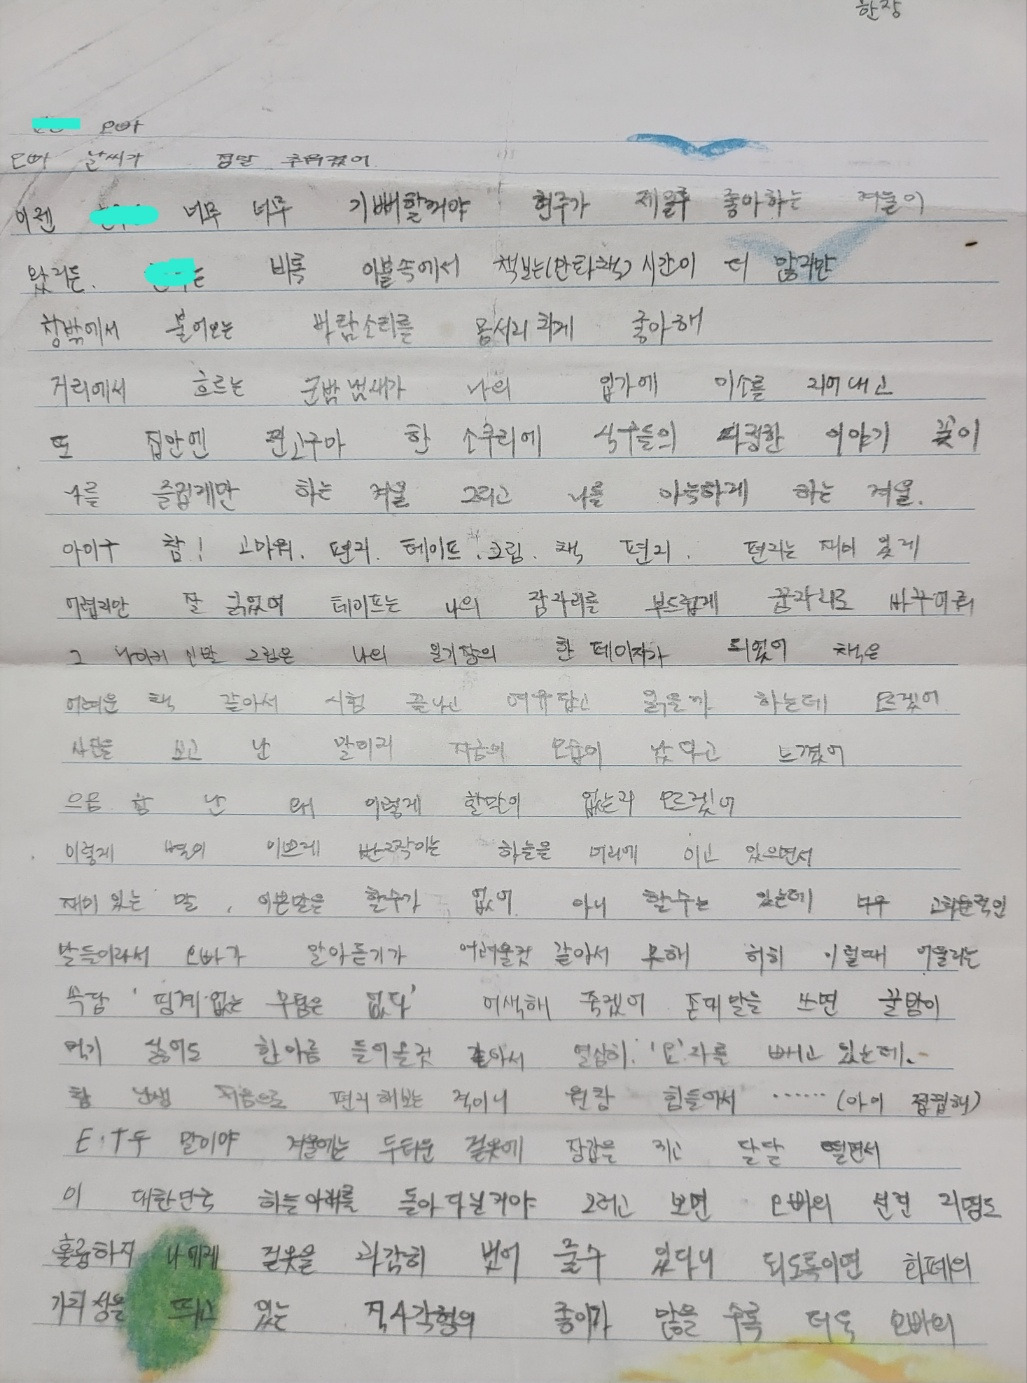 한장
오빠
오빠 날씨가 정말 추워졌어
이젠 너무 너무 기뻐할꺼야 현주가 제일루 좋아하는 겨울이
왔거든. 비록 이불속에서 책보는(만화책) 시간이 더 많지만
창밖에서 불어오는 바람소리를 몸서리 치게 좋아해
거리에서 흐르는 군밤 냄새가 나의 입가에 미소를 지어내고
또 집안엔 찐고구마 한 소쿠리에 식구들의 다정한 이야기 꽃이
나를 즐겁게만 하는 겨울 그리고 나를 아늑하게 하는 겨울.
아이구 참! 고마워. 편지. 테이프. 그림. 책 편지. 편지는 재미 있게
어렵지만 잘 읽었어 테이프는 나의 잠자리를 부드럽게 꿈자리로 바꾸어줘
그 나이키 신발 그림은 나의 일기장의 한 페이지가 되었어 책은
어려운 책 같아서 시험 끝나고 여유답고 읽을까 하는데 모르겠어
사진을 보고 난 말이지 지금의 모습이 낫다고 느꼈어
으음 참 난 왜 이렇게 할말이 없는지 모르겠어
이렇게 별의 이쁘게 반짝이는 하늘을 머리에 이고 있으면서
재미 있는 말, 이쁜말은 할수가 없어. 아니 할수는 있는데 너무 고차원적인
말들이라서 오빠가 알아듣기가 어려울것 같아서 못해 허허 이럴때 어울리는
속담 '핑계 없는 무덤은 없다' 어색해 죽겠어 존대말을 쓰면 꿀밤이
먹기 싫어도 한아름 들어올것 같아서 열심히. '요'자를 빼고 있는데.
참 난생 처음으로 편지해보는 적이니 원참 힘들어서 ...... (아이 찝찝해)
E.T두 말이야 겨울에는 두터운 겉옷에 장갑을 끼고 달달 떨면서
이 대한민국 하늘아래를 돌아 다닐거야 그러고 보면 오빠의 선견 지명도
훌륭하지 나에게 겉옷을 과감히 벗어 줄수 있다니 되도록이면 화폐의
가치성을 띄고 있는 직사각형의 종이가 많을 수록 더욱 오빠의